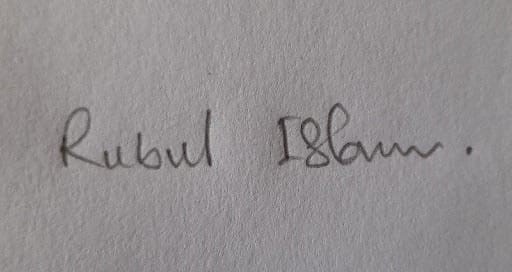 Rubul Islam.